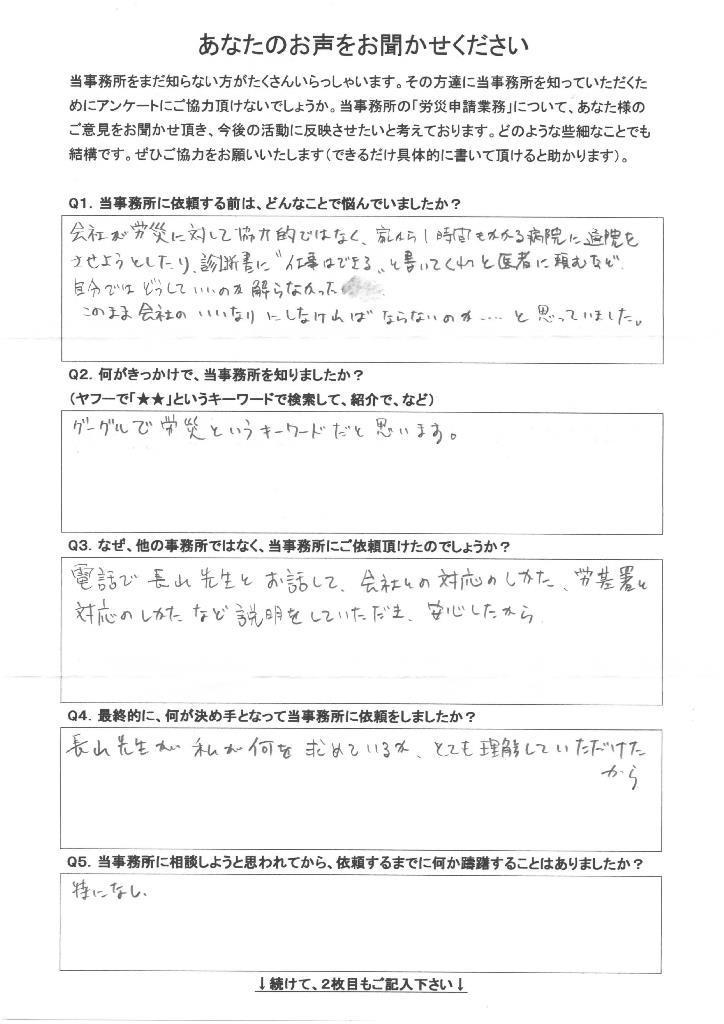 あなたのお声をお聞かせください
当事務所をまだ知らない方がたくさんいらっしゃいます。その方達に当事務所を知っていただくた
めにアンケートにご協力頂けないでしょうか。当事務所の「労災申請業務」について、あなた様の
ご意見をお聞かせ頂き、今後の活動に反映させたいと考えております。どのような些細なことでも
結構です。ぜひご協力をお願いいたします(できるだけ具体的に書いて頂けると助かります)。
Q1. 当事務所に依頼する前は、どんなことで悩んでいましたか?
会社が労災に対して協力的ではなく、家から1時間もかかる病院に通院を
させようとしたり、診断書に"仕事はできる"と書いてくれと医者に頼むなど
自分ではどうしていいのか解らなかった
このまま会社のいいなりにしなければならないのか……と思っていました。
Q2. 何がきっかけで、当事務所を知りましたか?
(ヤフーで「★★」というキーワードで検索して、紹介で、など)
グーグルで労災というキーワードだと思います。
Q3. なぜ、他の事務所ではなく、当事務所にご依頼頂けたのでしょうか?
電話で長山先生とお話して、会社との対応のしかた、労基署と
対応のしかたなど説明をしていただき、安心したから
Q4. 最終的に、何が決め手となって当事務所に依頼をしましたか?
長山先生が私が何を求めているか、とても理解していただけた
から
Q5. 当事務所に相談しようと思われてから、依頼するまでに何か躊躇することはありましたか?
特になし、
↓続けて、2枚目もご記入下さい↓